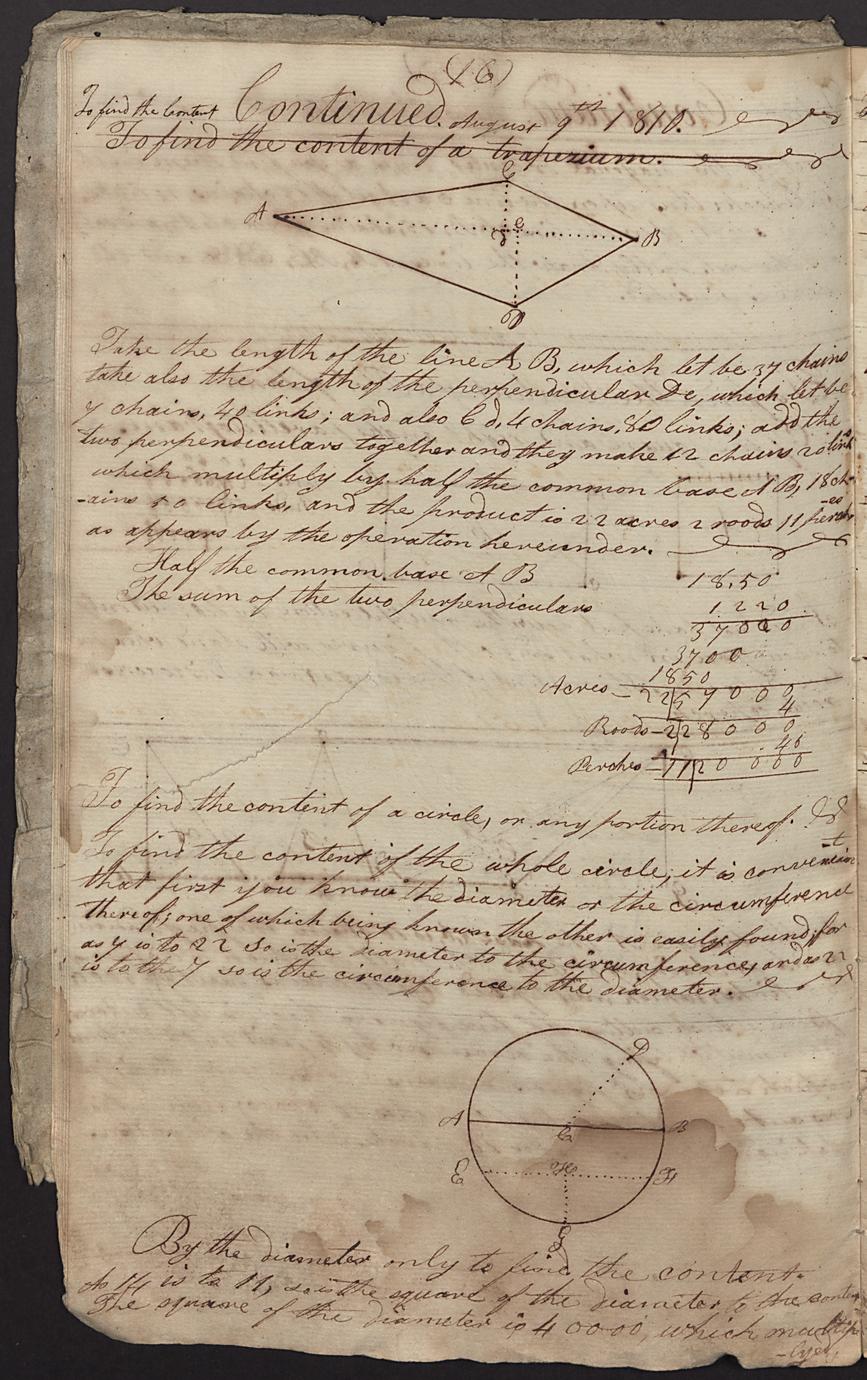 (6)
To find the Content Continued. August 9th 1810.
To find the content of a trapezium.
C
A
e
B
D
Take the length of the line A B, which let be 37 chains
take also the length of the perpendicular De, which let be
7 chains, 40 links; and also C d, 4 chains, 80 links; add the
two perpendiculars together and they make 12 chains 20 links
which multiply by half the common base A B, 18 ch-
-ains 50 links, and the product is 22 acres 2 roods 11 perch-
-es
as appears by the operation hereunder.
Half the common base A B 18,50
The sum of the two perpendiculars 1 2 2 0
3 7 0 0 0
3700
1850
Acres - 22|5 7 0 0 0
4
Roods - 2|2 8 0 0 0
40
Perches - 11|2 0 0 0 0
To find the content of a circle, or any portion thereof.
To find the content of the whole circle, it is convenien
-t
that first you know the diameter or the circumference
thereof; one of which being known the other is easily found, for
as 7 is to 22 so is the diameter to the circumference, and as 22
is to the 7 so is the circumference to the diameter.
D
A
B
E
H
F
By the diameter only to find the content.
As 14 is to 11, so is the square of the diameter to the
The square of the diameter is 4 00 00, which multip
-lyed